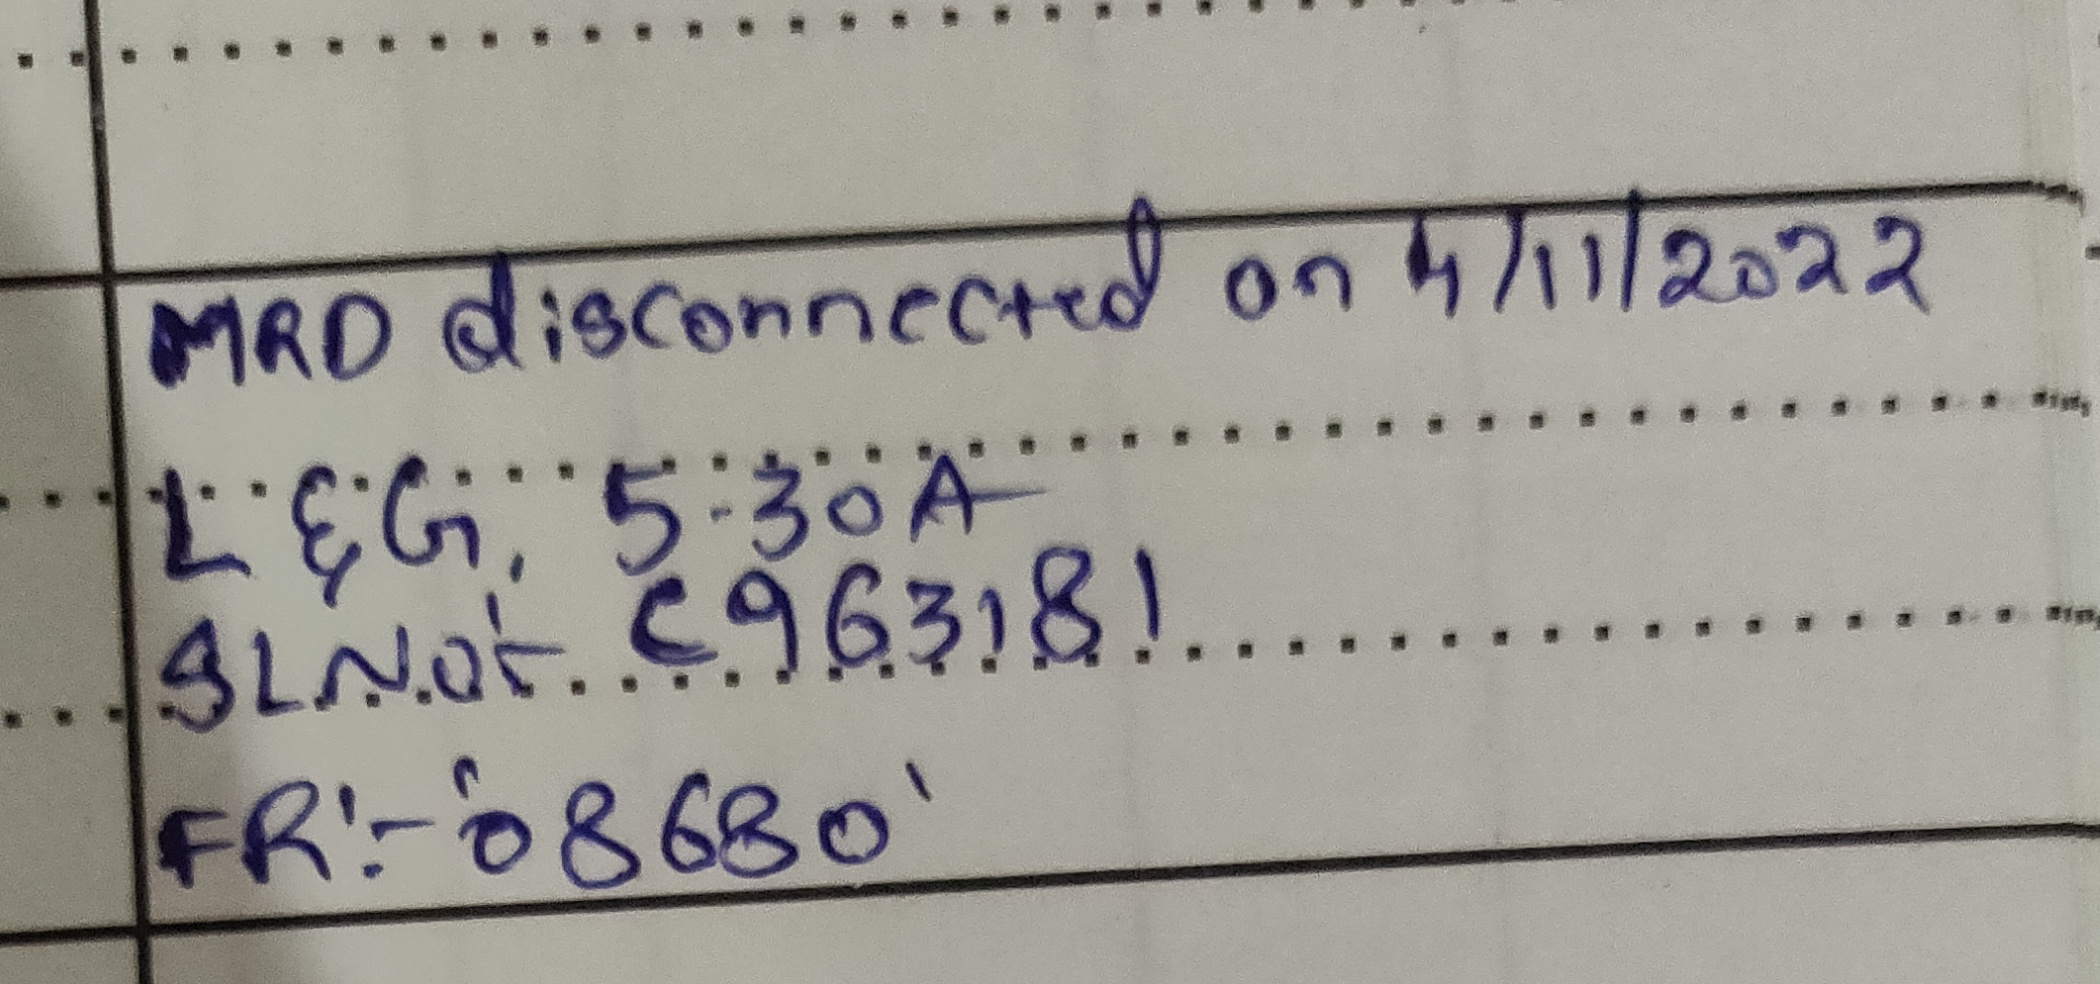 MRD disconnected on 4/11/2022
L&G, 5-30A
SLNO:- C963181
FR:- '08680'